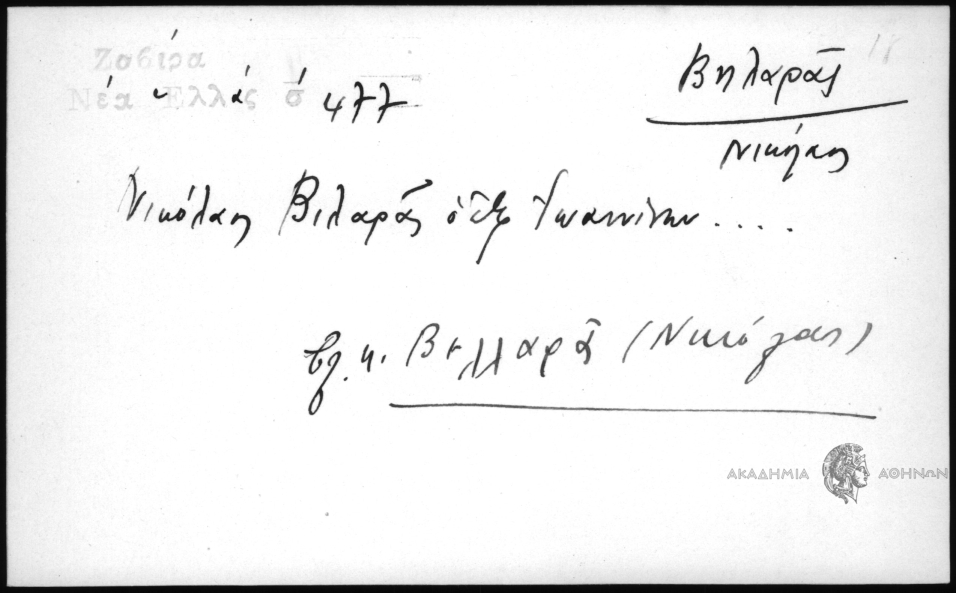 Ζαβίρα
Νέα Ἑλλάς σ 477
Βηλαρᾶς
Νικόλαος
Νικόλαος Βιλαρᾶς ὁ ἐξ Ἰωαννίνων....
βλ. κ. Βηλλαρᾶ (Νικόλαος)
ΑΚΑΔΗΜΙΑ ΑΘΗΝΩΝ